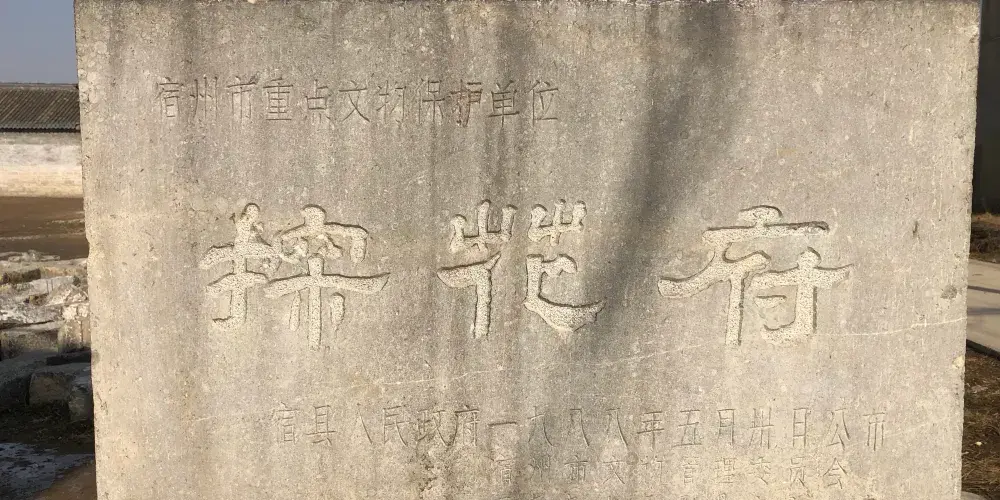 宿州市重点文物保护单位
探花府
宿县人民政府一九八八年五月卅日公市
宿州市文物管理委员会